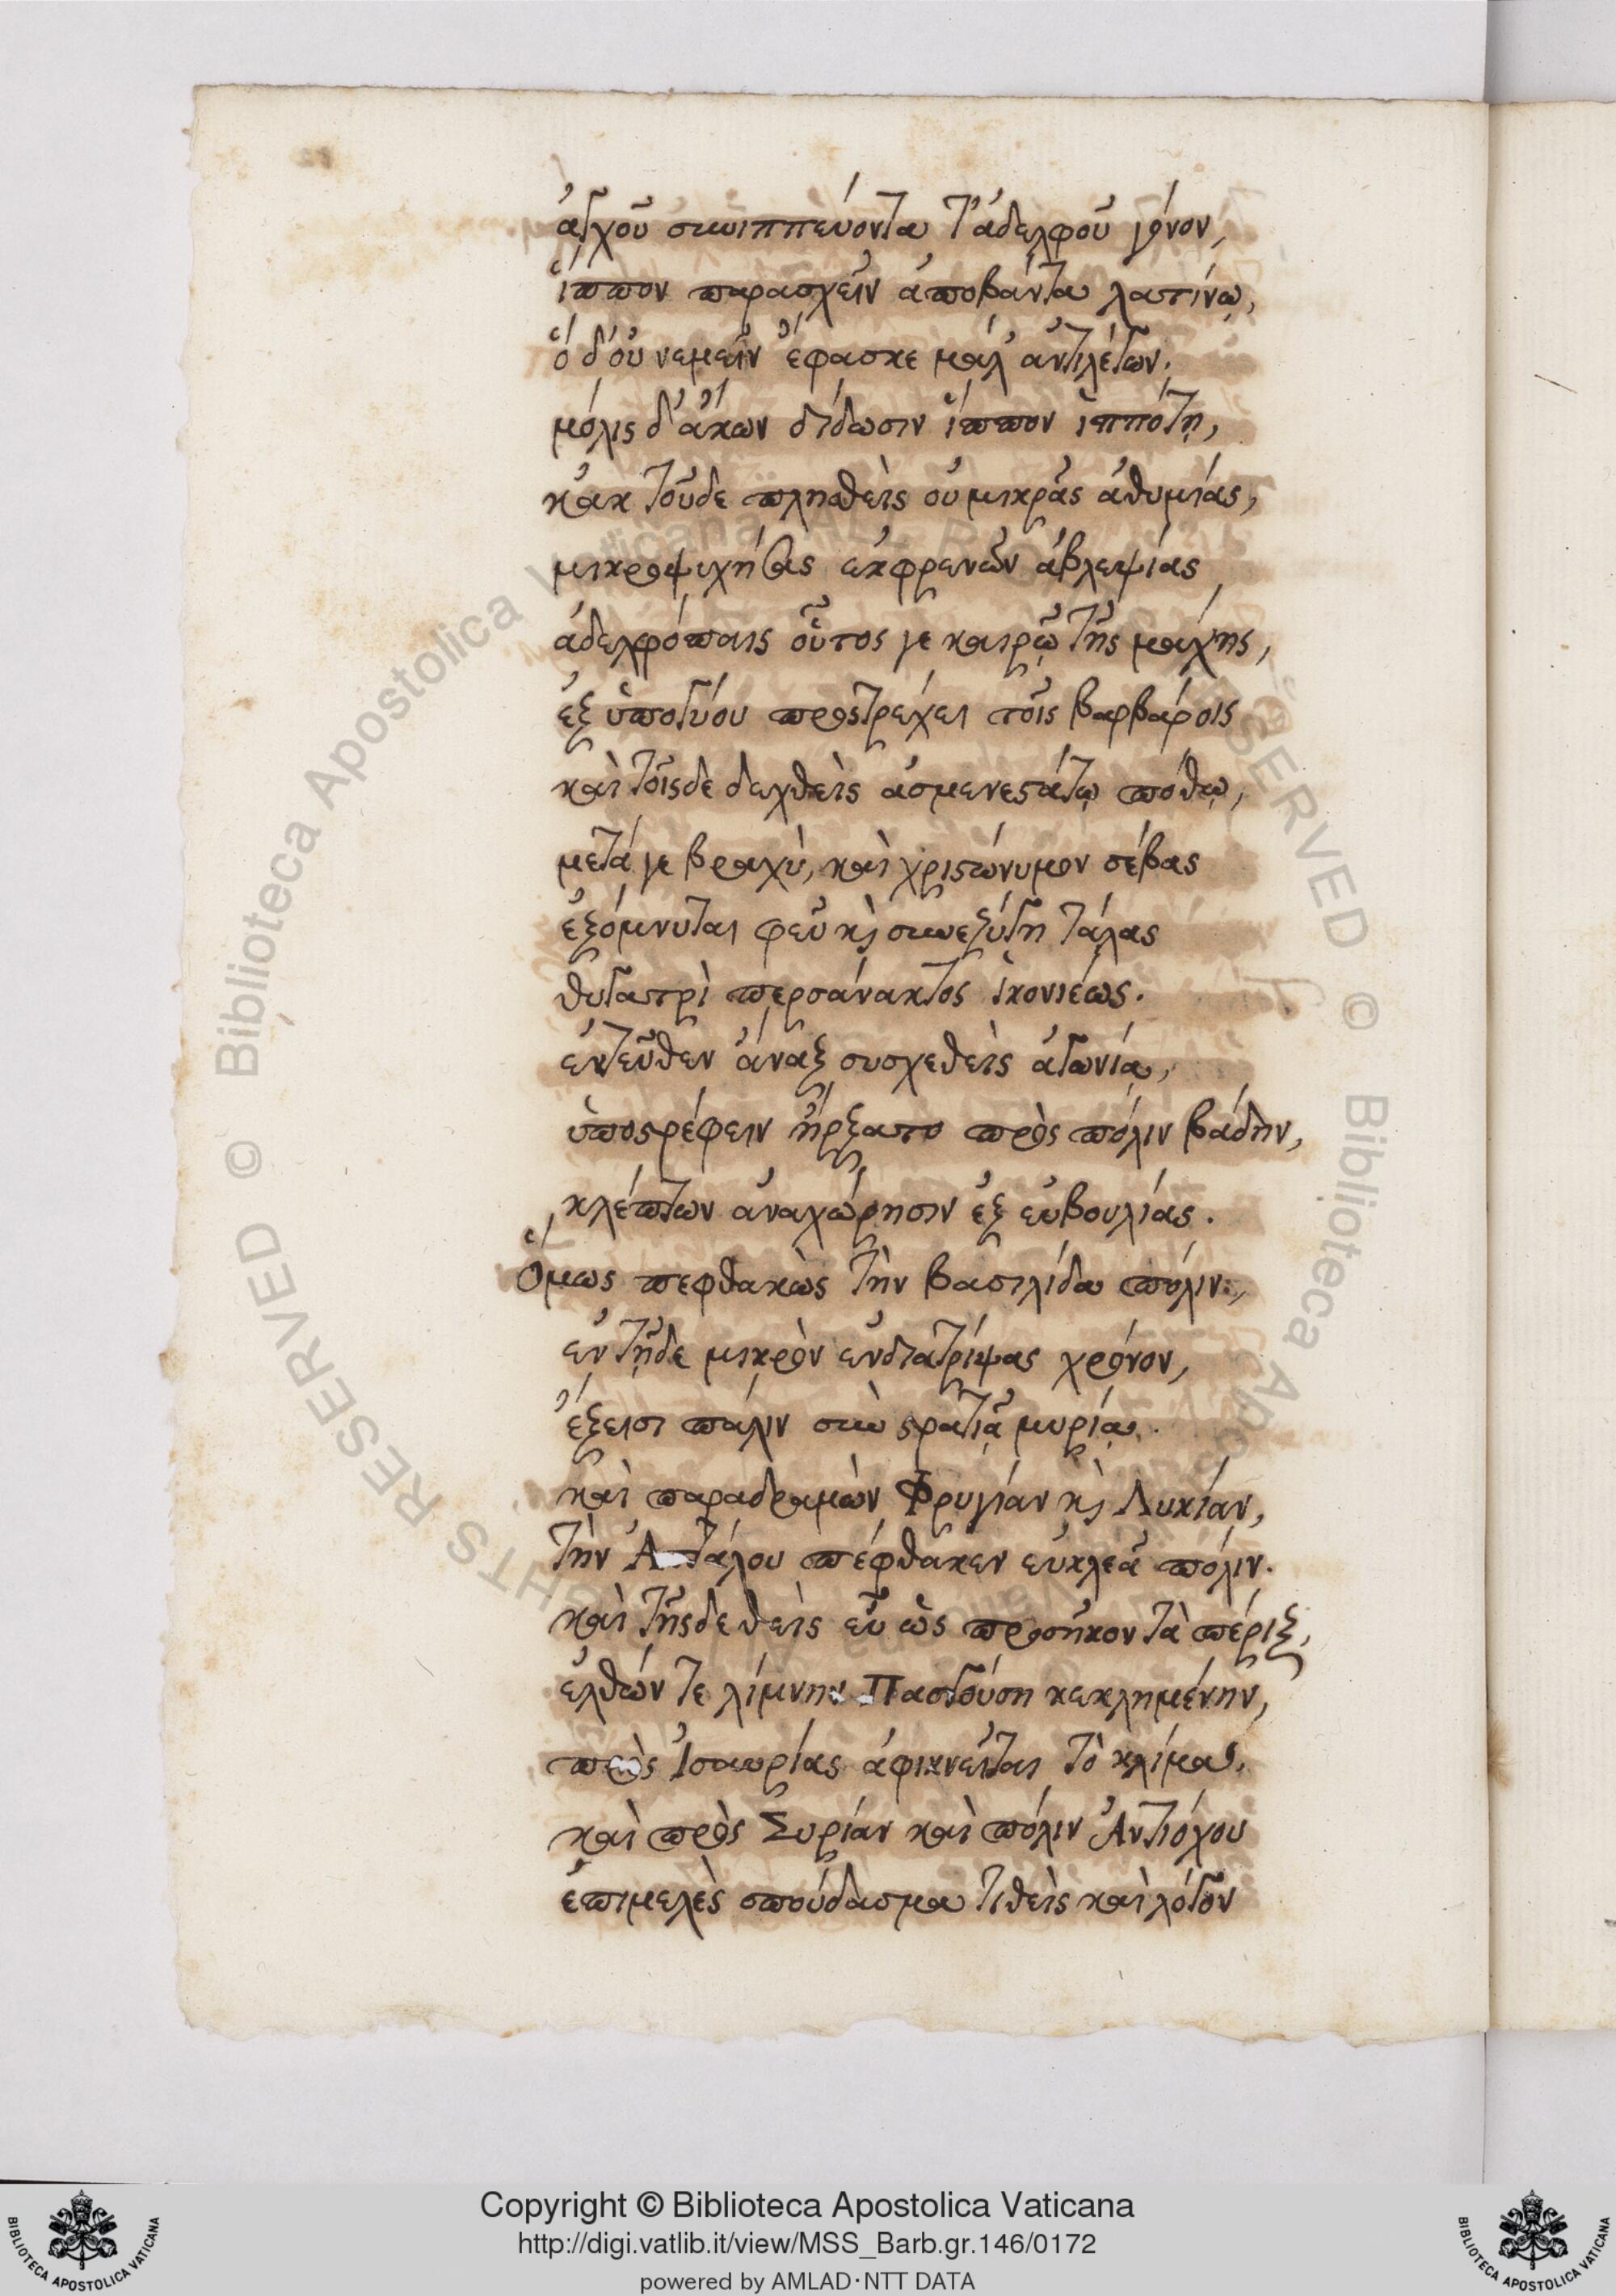 ἀγχοῦ συνιππεύοντα τἀδελφοῦ γόνον,
ἵππον παρασχεῖν ἀποβάντα λατίνῳ,
ὁ δ' οὐ νεμεῖν ἔφασκε μάλ' ἀντιλέγων.
μόλις δ' ἄκων δίδωσιν ἵππον ἱππότῃ,
κἀκ τοῦδε πλησθεὶς οὐ μικρᾶς ἀθυμίας,
μικροψυχήσας ἐκ φρενῶν ἀβλεψίας
ἀδελφόπαις οὗτος γε καιρῷ τῆς μάχης,
ἐξ ὑπογύου προστρέχει τοῖς βαρβάροις
καὶ τοῖςδε δεχθεὶς ἀσμενεστάτῳ πόθῳ,
μετά γε βραχὺ, καὶ χριστώνυμον σέβας
ἐξόμνυται φεῦ κὶ συνεζύγη τάλας
θυγατρὶ περσάνακτος ἰκονιέως.
ἐντεῦθεν ἄναξ συσχεθεὶς ἀγωνίᾳ,
ὑποστρέφειν ἤρξατο πρὸς πόλιν βάδην,
κλέπτων ἀναχώρησιν ἐξ εὐβουλίας.
Ὅμως πεφθακὼς τὴν βασιλίδα πόλιν,
ἐν τῇδε μικρὸν ἐνδιατρίψας χρόνον,
ἔξεισι πάλιν σὺν στρατιᾷ μυρίᾳ.
καὶ παραδραμὼν Φρυγίαν κὶ Λυκίαν,
τὴν Ἀττάλου πέφθακεν εὐκλεᾶ πόλιν.
καὶ τῆςδε θεὶς εὖ ὡς προσῆκον τὰ πέριξ,
ἐλθών τε λίμνην Πασγούση κεκλημένην,
πρὸς Ἰσαυρίας ἀφικνεῖται τὸ κλίμα.
καὶ πρὸς Συρίαν καὶ πόλιν Ἀντιόχου
ἐπιμελὲς σπούδασμα τιθεὶς καὶ λόγον
Copyright © Biblioteca Apostolica Vaticana
http://digi.vatlib.it/view/MSS_Barb.gr.146/0172
powered by AMLAD·NTT DATA